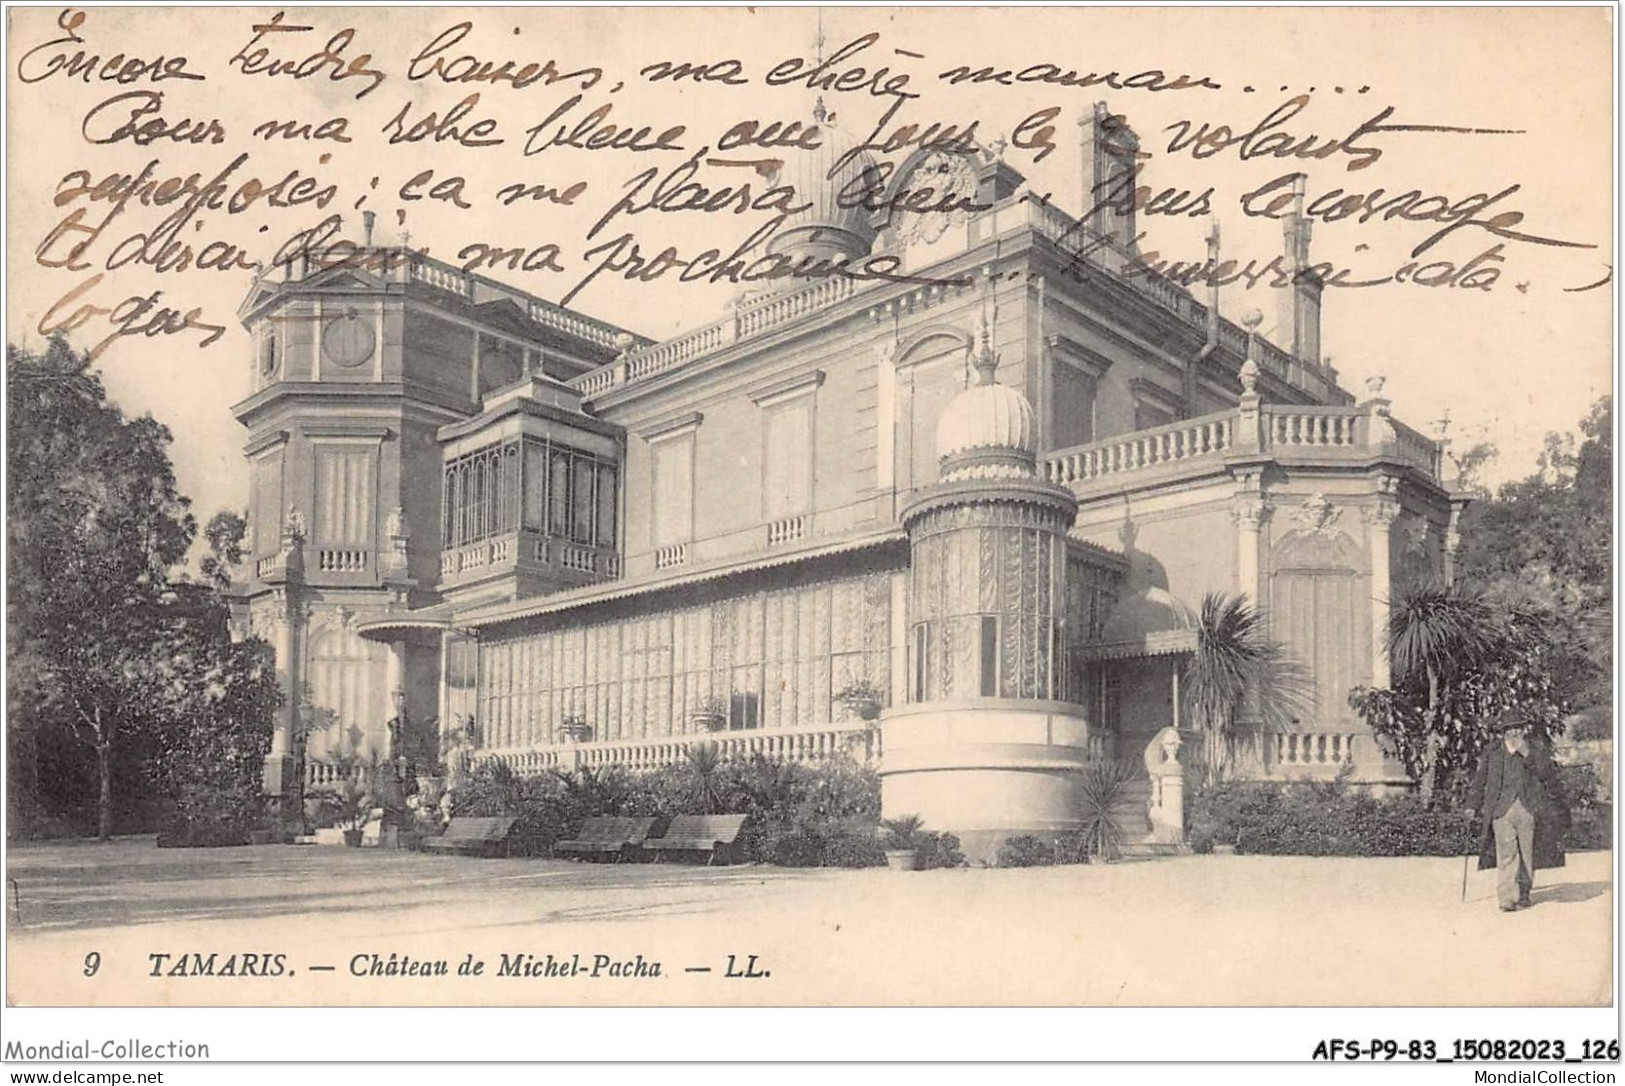 Encore tendres baisers, ma chère maman.....
Pour ma robe bleue, oui pour les 2 volants
superposés ; ça me plaira bien.. pour le corsage
te dirai dans ma prochaine ... t'enverrai cata.
logues
9 TAMARIS. — Château de Michel-Pacha — LL.
Mondial-Collection
AFS-P9-83_15082023_126
www.delcampe.net
MondialCollection